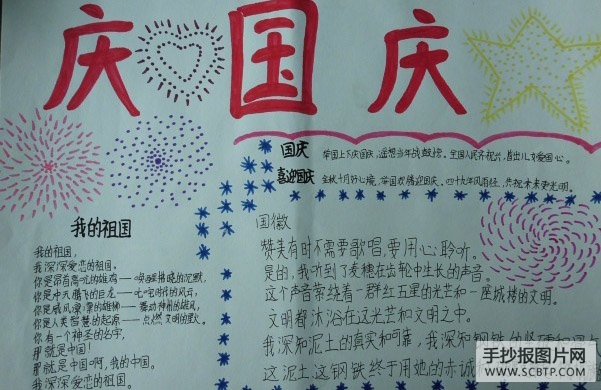 庆国庆
国庆
举国上下庆国庆,遥想当年战鼓擂。全国人民齐祝兴,首出儿女爱国心。
喜迎国庆
金秋十月好心境,举国欢腾迎国庆。四十九年风雨征,共祝未来更光明。
我的祖国
我的祖国,
我深深爱恋的祖国。
你是昂首高吭的雄鸡——唤醒拂晓的沉默,
你是冲天腾飞的巨龙——叱咤时代的风云,
你是威风凛凛的雄狮——舞动神州的雄风,
你是人类智慧的起源——点燃文明的星火。
你有一个神圣的名字,
那就是中国!
那就是中国啊,我的中国。
我深深爱恋的祖国。
国徽
赞美有时不需要歌唱,要用心聆听。
是的,我听到了麦穗在齿轮中生长的声音。
这个声音萦绕着一群红五星的光芒和一座城楼的文明。
文明都沐浴在这光芒和文明之中。
我深知泥土的真实和可靠,我深知钢铁的坚硬和
这泥土这钢铁终于用她的赤诚
手抄报图片网
WWW.SCBTP.COM